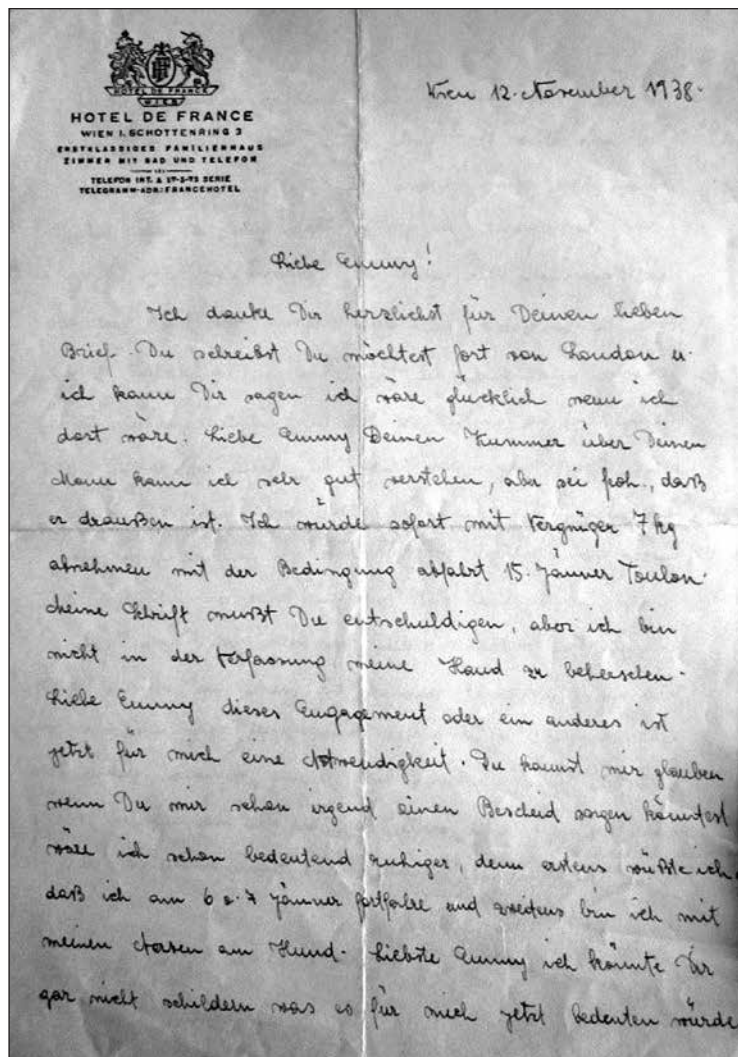 HOTEL DE FRANCE
WIEN
HOTEL DE FRANCE
WIEN I. SCHOTTENRING 3
ERSTKLASSIGES FAMILIENHAUS
ZIMMER MIT BAD UND TELEFON
TELEFON INT. A 17-5-95 SERIE
TELEGRAMM-ADR: FRANCEHOTEL
Wien 12. November 1938.
Liebe Emmy!
Ich danke Dir herzlichst für Deinen lieben
Brief. Du schreibst Du möchtest fort von London u.
ich kann Dir sagen ich wäre glücklich wenn ich
dort wäre. Liebe Emmy Deinen Kummer über Deinen
Mann kann ich sehr gut verstehen, aber sei froh, daß
er draußen ist. Ich würde sofort mit Vergnügen 7 kg
abnehmen mit der Bedingung abfahrt 15. Jänner Toulon.
Meine Schrift mußt Du entschuldigen, aber ich bin
nicht in der Verfassung meine Hand zu beherschen.
Liebe Emmy dieses Engagement oder ein anderes ist
jetzt für mich eine Notwendigkeit. Du kannst mir glauben
wenn Du mir schon irgend einen Bescheid sagen könntest
wäre ich schon bedeutend ruhiger, denn erstens wüßte ich
daß ich am 6 o. 7 Jänner fortfahre und zweitens bin ich mit
meinen Nerven am Hund. Liebste Emmy ich könnte Dir
gar nicht schildern was es für mich jetzt bedeuten würde